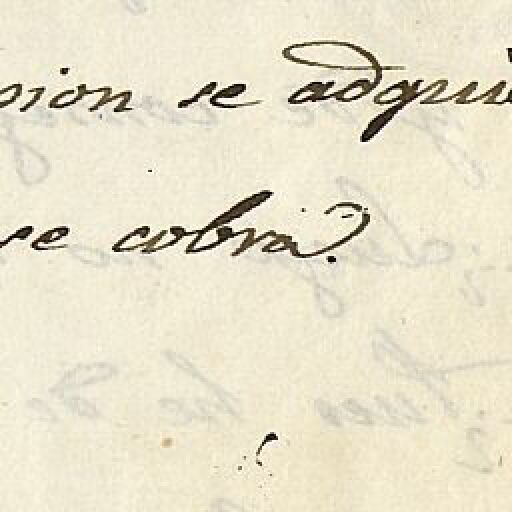 sion se adqui
se cobra?